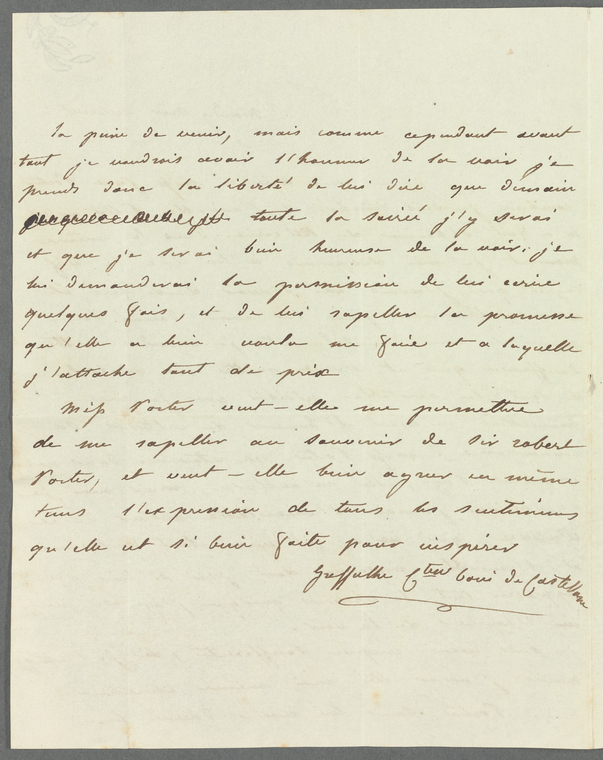 la peine de venir, mais comme cependant avant
tout je voudrois avoir l'honneur de la voir je
prends donc la liberté de lui dire que demain
toute la soirée j'y serai
et que je serai bien heureuse de la voir. je
lui demanderai la permission de lui ecrire
quelques fois, et de lui rapeller la promesse
qu'elle a bien voulu me faire et a laquelle
j'attache tant de prix
Miss Porter veut-elle me permettre
de me rapeller au souvenir de Sir robert
Porter, et veut-elle bien agreer en même
tems l'expression de tous les sentimens
qu'elle est si bien faite pour inspirer
Greffulhe Ctesse boni de Castellane